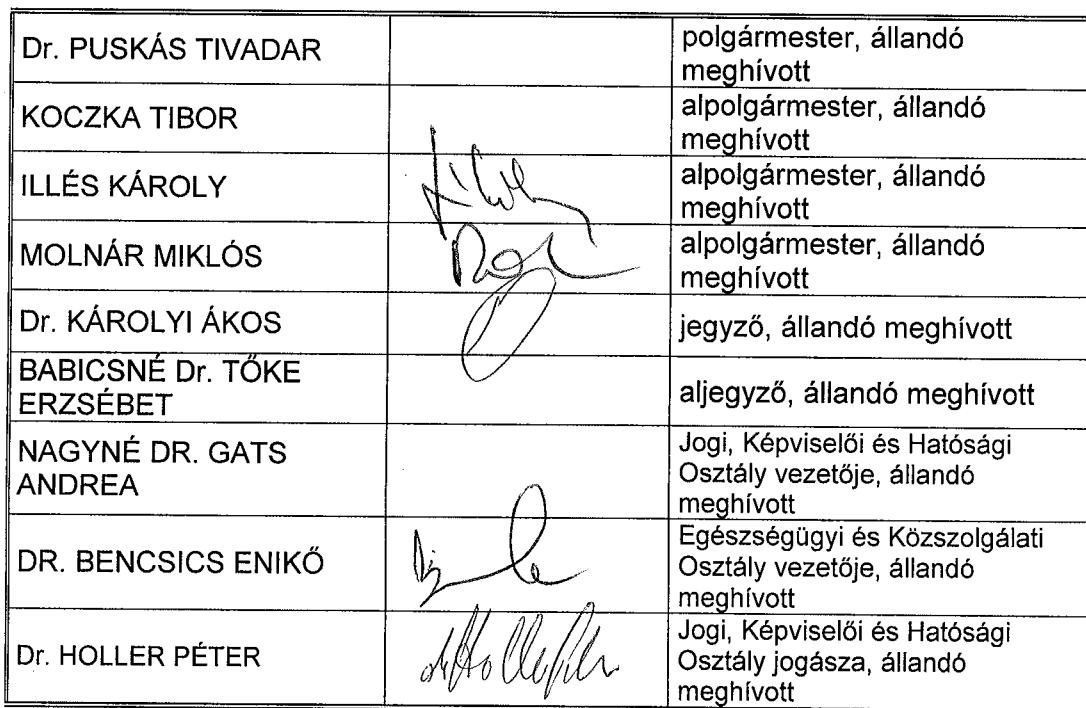 Dr. PUSKÁS TIVADAR
polgármester, állandó
meghívott
KOCZKA TIBOR
alpolgármester, állandó
meghívott
ILLÉS KÁROLY
alpolgármester, állandó
meghívott
MOLNÁR MIKLÓS
alpolgármester, állandó
meghívott
Dr. KÁROLYI ÁKOS
jegyző, állandó meghívott
BABICSNÉ Dr. TŐKE
ERZSÉBET
aljegyző, állandó meghívott
NAGYNÉ DR. GATS
ANDREA
Jogi, Képviselői és Hatósági
Osztály vezetője, állandó
meghívott
DR. BENCSICS ENIKŐ
Egészségügyi és Közszolgálati
Osztály vezetője, állandó
meghívott
Dr. HOLLER PÉTER
Jogi, Képviselői és Hatósági
Osztály jogásza, állandó
meghívott